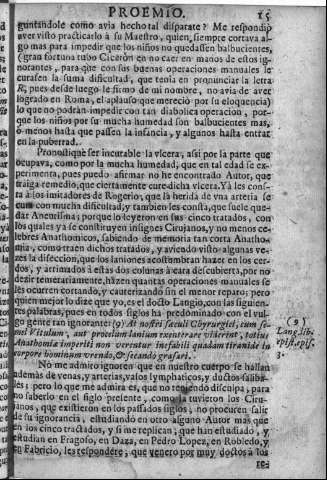 PROEMIO. 15
guntandole como avia hecho tal disparate? Me respondió
aver visto practicarlo à su Maestro, quien, siempre cortava al-
go mas para impedir que los niños no quedassen balbucientes,
(gran fortuna tubo Ciceròn en no caer en manos de estos ig-
norantes, para que con sus buenas operaciones manuales le
curasen la suma dificultad, que tenia en pronunciar la letra
R, pues desde luego le firmo de mi nombre, no avia de aver
logreado en Roma, el aplauso que mereciò por su eloquencia)
lo que no podràn impedir con tan diabolica operacion, por-
que los niños por su mucha humedad son balbucientes mas,
ò menos hasta que passen la infancia, y algunos hasta entrar
en la puberrad.
Pronostiquè ser incurable la vlcera, assi por la parte que
ocupava, como por la mucha humedad, que en tal edad se ex-
perimenta, pues puedo afirmar no he encontrado Autor, que
traiga remedio, que ciertamente cure dicha vlcera. Yà les cons-
ta à los imitadores de Rogerio, que la herida de vna arteria se
cura con mucha dificultad, y tambien les consta, que suele que-
dar Aneurisma; porque lo leyeron en sus cinco tratados, con
los quales ya se constituyen insignes Cirujanos, y no menos ce-
lebres Anathomicos, sabiendo de memoria tan corta Anatho-
mia, como traen dichos tratados, y aviendo visto algunas ve-
zes la diseccion, que los laniones acostumbran hazer en los cer-
dos, y arrimados à estas dos colunas à cara descubierta, por no
dezir temerariamente, hàzen quantas operaciones manuales se
les ocurren cortando, y cauterizando sin el menor reparo; pero
quien mejor lo dize que yo, es el docto Langio, con las siguien-
tes palabras, pues en todos siglos ha predominado con el vul-
go gente tan ignorante: (9) At nostri sæculi Chyrurgici, cum se-
mel Vitulum, aut procelum lanium trucidare viderint, totius
Anathomiæ imperiti non verentur inefabili quadam tiranide in
corpore hominum vrendo, & secando grasari.
(9)
Lang. lib.
epist. epis.
3.
No me admiro ignoren que en nuestro cuerpo se hallan
ademàs de venas, y arterias, valos lymphaticos, y ductos saliba-
les; pero lo que me admira es, que no teniendo disculpa, para
no saberlo en el siglo presente, como la tuvieron los Ciru-
janos, que existieron en los passados siglos, no procuren salir
de su ignorancia, estudiando en otro alguno Autor mas que
en los cinco tractados, y si me replican, que han estudiado, y
estudian en Fragoso, en Daza, en Pedro Lopez, en Robledo, y
en Fabricio, les respondère, que venero por muy doctos à los
re-